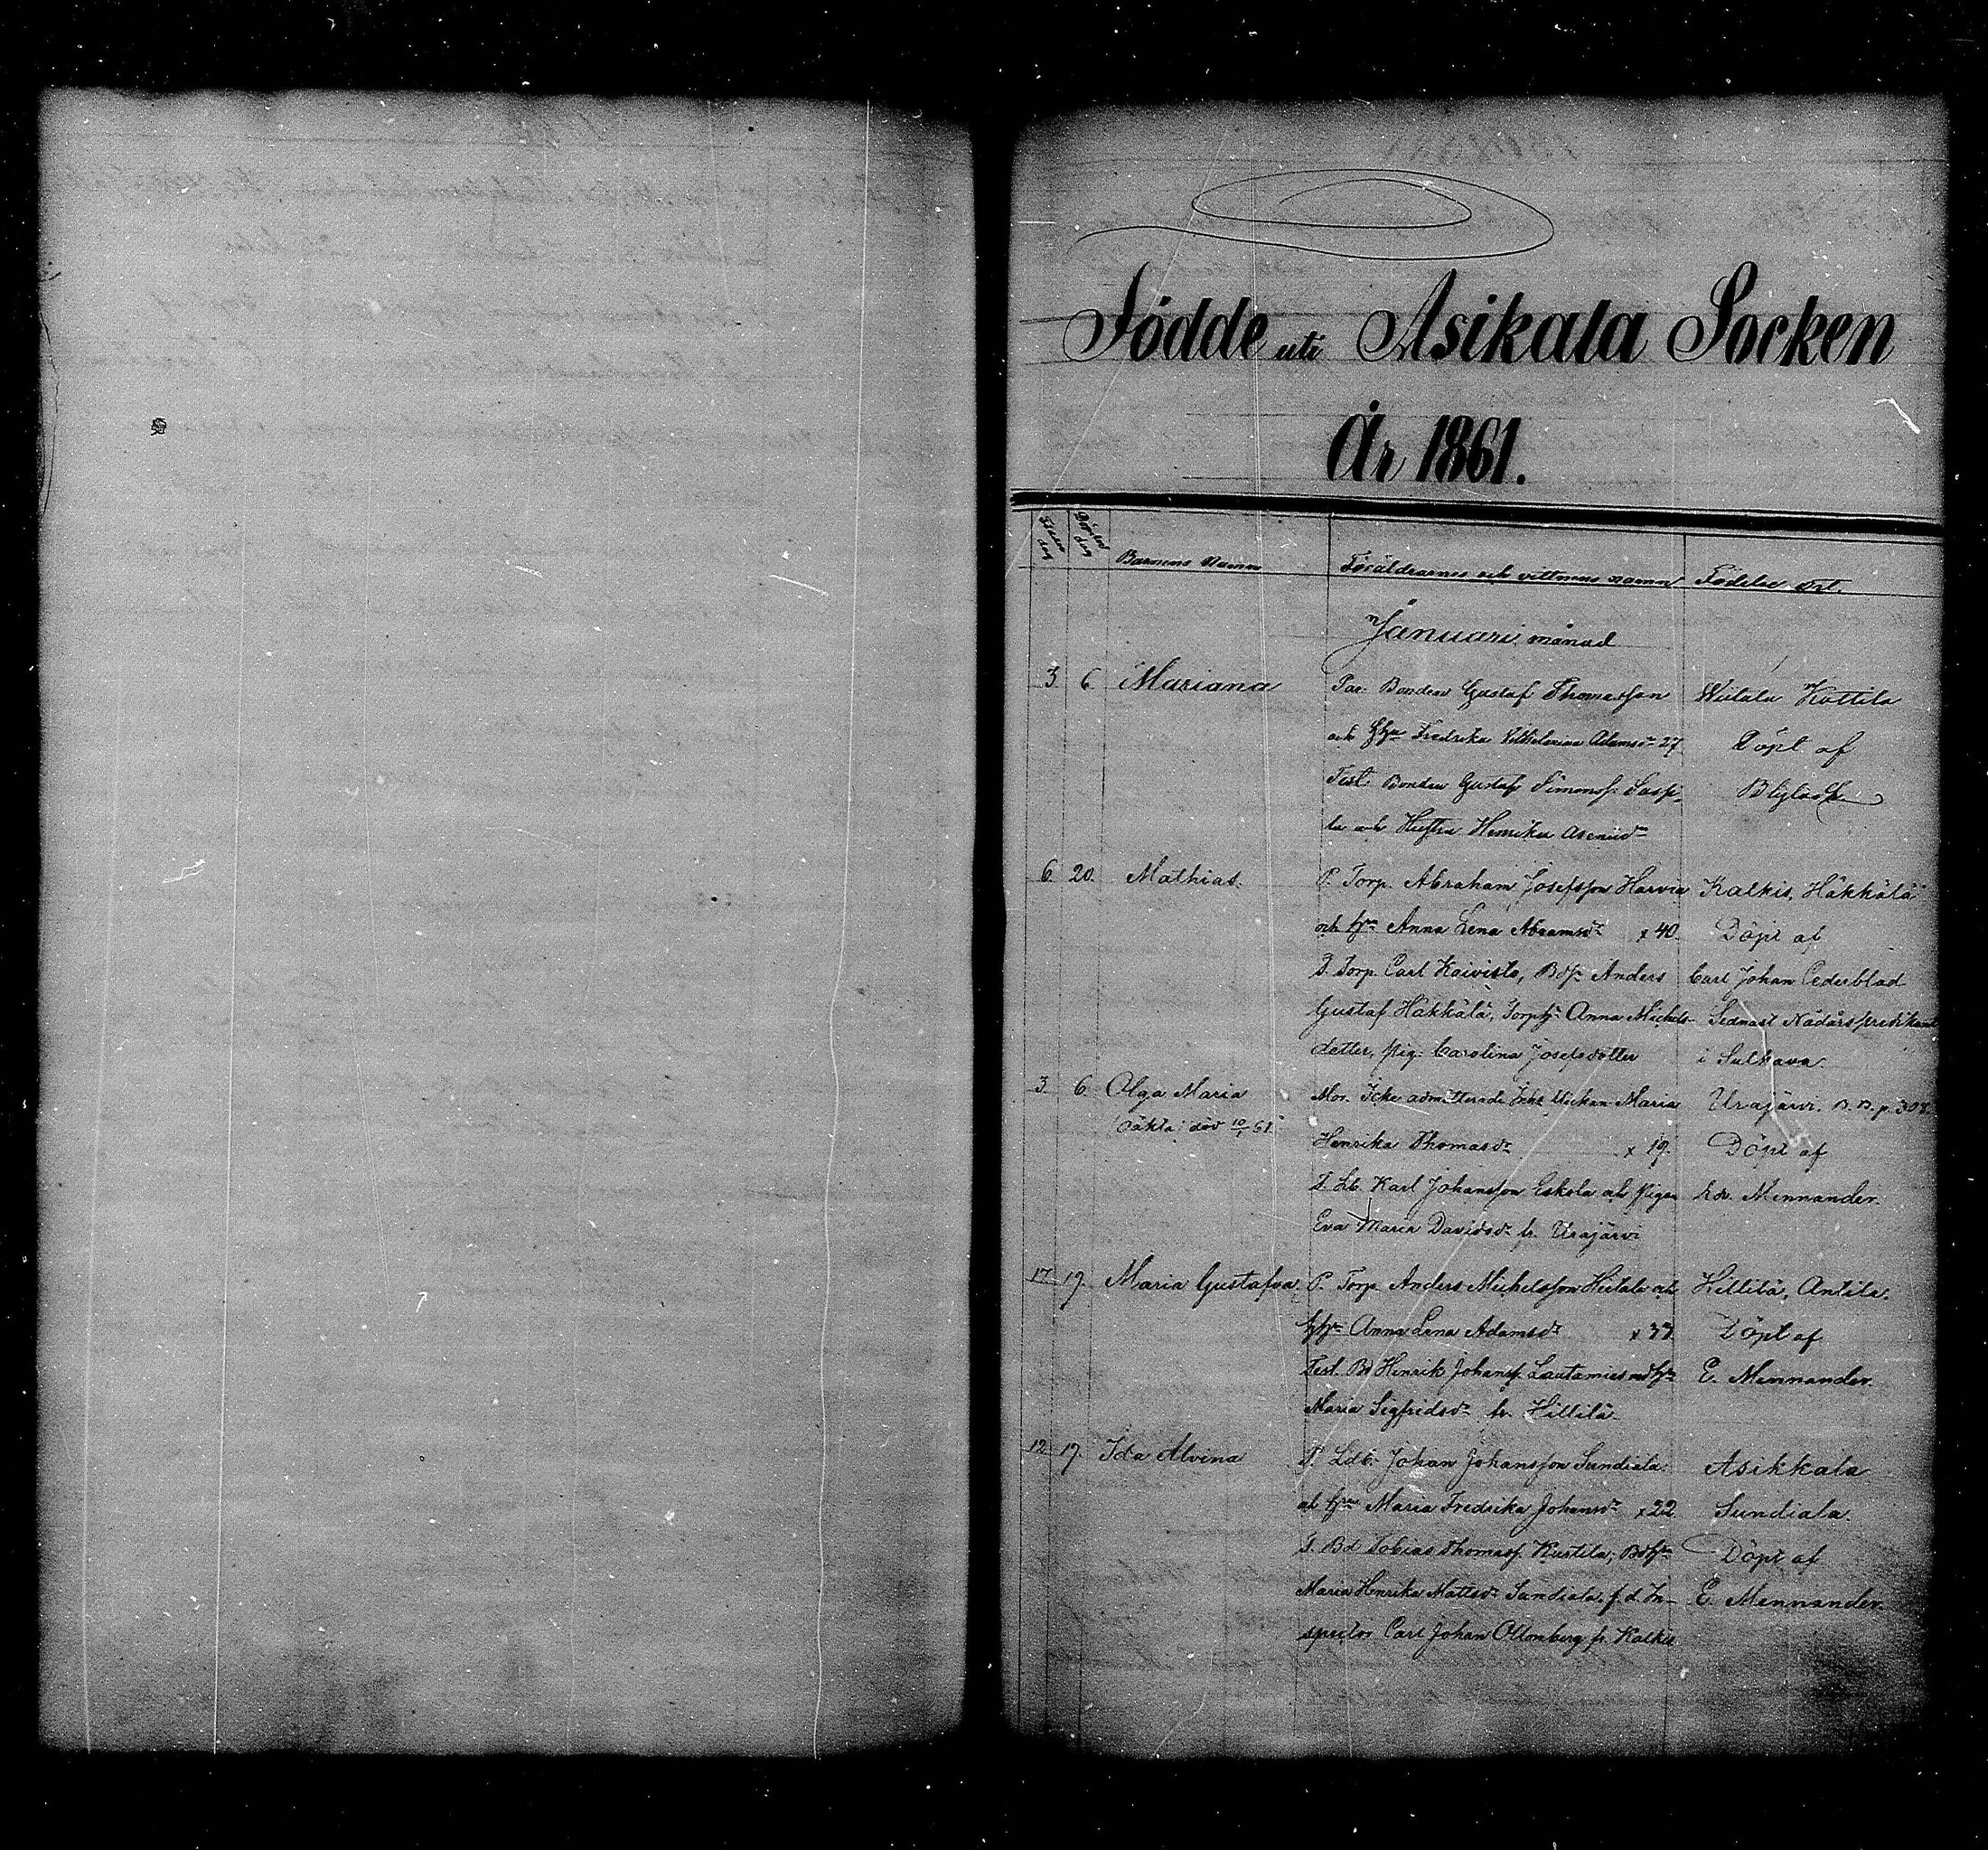 Födde uti Asikala Socken
År 1861.
Födelse dag
Döpelse dag
Barnens Namn
Föräldrarnes och vittnens namn
Födelse Ort.
Januari månad
3 6 Mariana Par. Bonden Gustaf Thomasson
och Hu Fredrika Vilhelmina Adamsdr 27
Test. Bonden Gustaf Simonss.
la och Hustru Henrika
Kottila
Döpt af
6 20. Mathias. P. Torp. Abraham Josefsson Harvia
och hu Anna Lena Abramsdr x 40.
T. Torp. Carl Koivisto, Bds Anders
Gustaf Häkkälä, Torphu Anna Michels-
dotter, pig. Carolina Josefsdotter
Kalkis, Häkkälä
Döpt af
Carl Johan Cederblad
Sednast Nådårspredikant
i Sulkava.
3 6. Olga Maria
Oäkta; död 10/1 61.
Mor. Icke admitterade Inhs flickan Maria
Henrika Thomasdr x 19.
T. Lb. Karl Johansson Eskola och Pigan
Eva Maria Davidsdr fr. Urajärvi
Urajärvi. B. B. p. 307.
Döpt af
Edv. Mennander.
17 19. Maria Gustafva. P. Torp. Anders Michelsson Hietala och
hu Anna Lena Adamsdr x 37.
Test. Bd Henrik Johanss. Lautamies md hu
Maria Sigfridsdr fr. Hillilä.
Hillilä, Antila.
Döpt af
E. Mennander.
12 17. Ida Alvina P. Ldb. Johan Johansson Sundiala.
och hu Maria Fredrika Johansdr x 22.
T. Bd Tobias Thomass. Kurtila; Bdhu
Maria Henrika Mattsdr Sundiala, f. d. In-
spector Carl Johan Ollonberg fr. Kalkis
Asikkala
Sundiala.
Döpt af
E. Mennander.